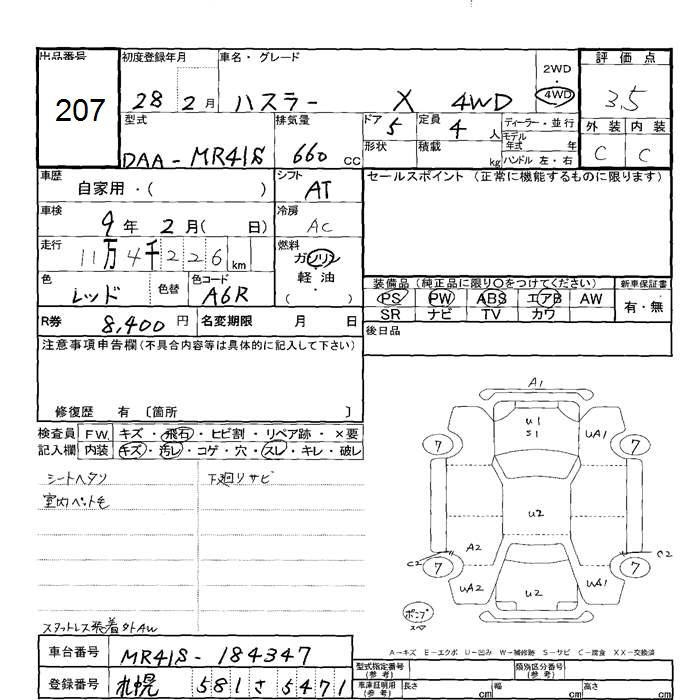 出品番号
207
初度登録年月
28 2月
車名・グレード
ハスラー X 4WD
2WD
・
4WD
評価点
3.5
外装 内装
C C
型式
DAA-MR41S
排気量
660 CC
ドア 5
定員 4 人
形状
積載 kg
ディーラー・並行
モデル年式 年
ハンドル 左・右
車歴
自家用・( )
シフト
AT
セールスポイント (正常に機能するものに限ります)
車検
9年 2月( 日)
冷房
AC
走行
11万4千226km
燃料
ガソリン
軽油
( )
色
レッド
色替
色コード
A6R
装備品 (純正品に限り○をつけてください)
PS PW ABS エアB AW
SR ナビ TV カワ
新車保証書
有・無
R券 8,400円
名変期限 月 日
後日品
注意事項申告欄(不具合内容等は具体的に記入して下さい)
修復歴 有 〔箇所 〕
検査員記入欄
FW. キズ・飛石・ヒビ割・リペア跡・×要
内装 キズ・汚レ・コゲ・穴・スレ・キレ・破レ
シートヘタリ
室内ペット毛
下廻りサビ
スタットレス装着外AW
A1
U1
S1
UA1
7
7
U2
A2
C2
C2
7
7
UA2
U2
UA1
ポンプ
スペ
A－キズ E－エクボ U－凹み W－補修跡 S－サビ C－腐食 XX－交換済
車台番号 MR41S-184347
登録番号 札幌 581 さ 5471
型式指定番号(参考)
類別区分番号(参考)
車庫証明用(参考)
長さ cm
幅 cm
高さ cm